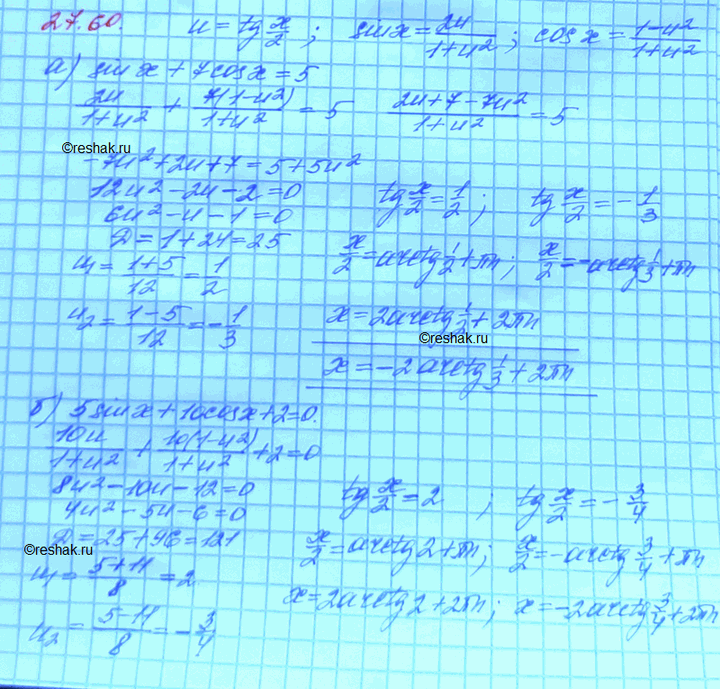 27.60. u = tg x/2 ; sin x = 2u/(1+u²) ; cos x = (1-u²)/(1+u²)
а) sin x + 7cos x = 5
2u/(1+u²) + 7(1-u²)/(1+u²) = 5 (2u+7-7u²)/(1+u²) = 5
©reshak.ru
-7u²+2u+7 = 5+5u²
12u²-2u-2=0
6u²-u-1=0
D=1+24=25
u₁ = (1+5)/12 = 1/2
u₂ = (1-5)/12 = -1/3
tg x/2 = 1/2 ; tg x/2 = -1/3
x/2 = arctg 1/2 + πn ; x/2 = -arctg 1/3 + πn
x = 2arctg 1/2 + 2πn
©reshak.ru
x = -2arctg 1/3 + 2πn
б) 5sin x + 10cos x + 2 = 0.
10u/(1+u²) + 10(1-u²)/(1+u²) + 2 = 0
8u²-10u-12=0
4u²-5u-6=0
D=25+96=121
©reshak.ru
u₁ = (5+11)/8 = 2
u₂ = (5-11)/8 = -3/4
tg x/2 = 2 ; tg x/2 = -3/4
x/2 = arctg 2 + πn ; x/2 = -arctg 3/4 + πn
x = 2arctg 2 + 2πn ; x = -2arctg 3/4 + 2πn